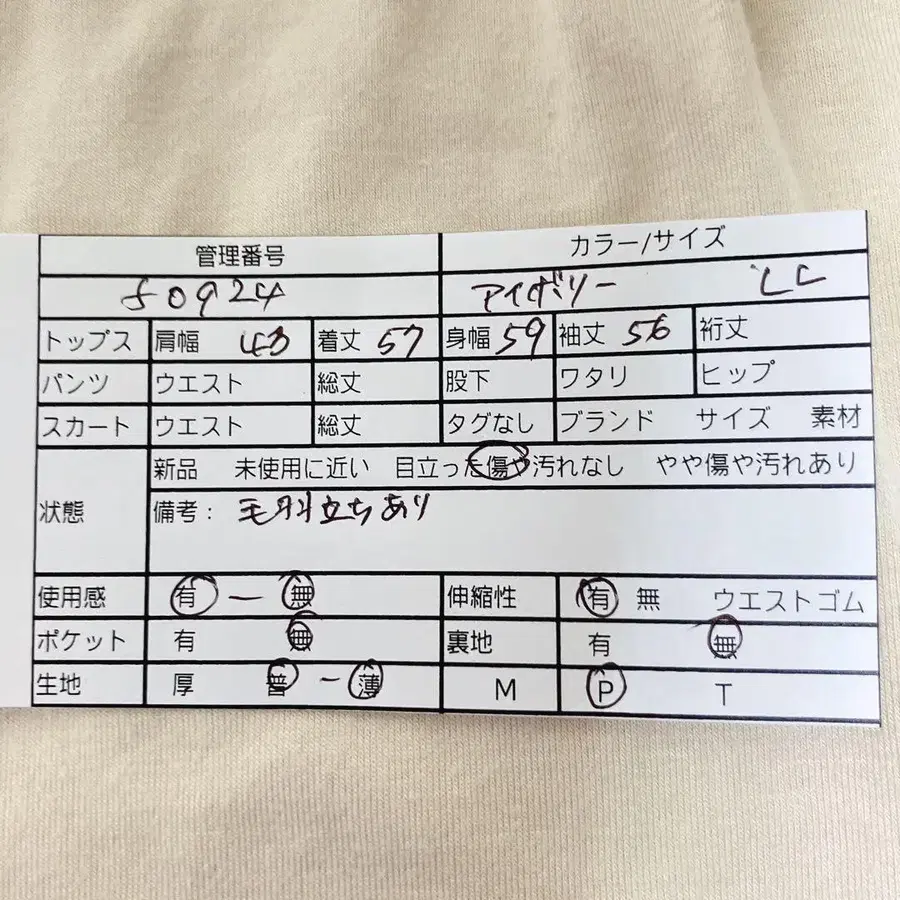 管理番号 カラー/サイズ
50924 アイボリー LL
トップス 肩幅 43 着丈 57 身幅 59 袖丈 56 裄丈
パンツ ウエスト 総丈 股下 ワタリ ヒップ
スカート ウエスト 総丈 タグなし ブランド サイズ 素材
状態 新品 未使用に近い 目立った傷や汚れなし やや傷や汚れあり
備考: 毛羽立ちあり
使用感 有 ー 無 伸縮性 有 無 ウエストゴム
ポケット 有 無 裏地 有 無
生地 厚 普 ー 薄 M P T